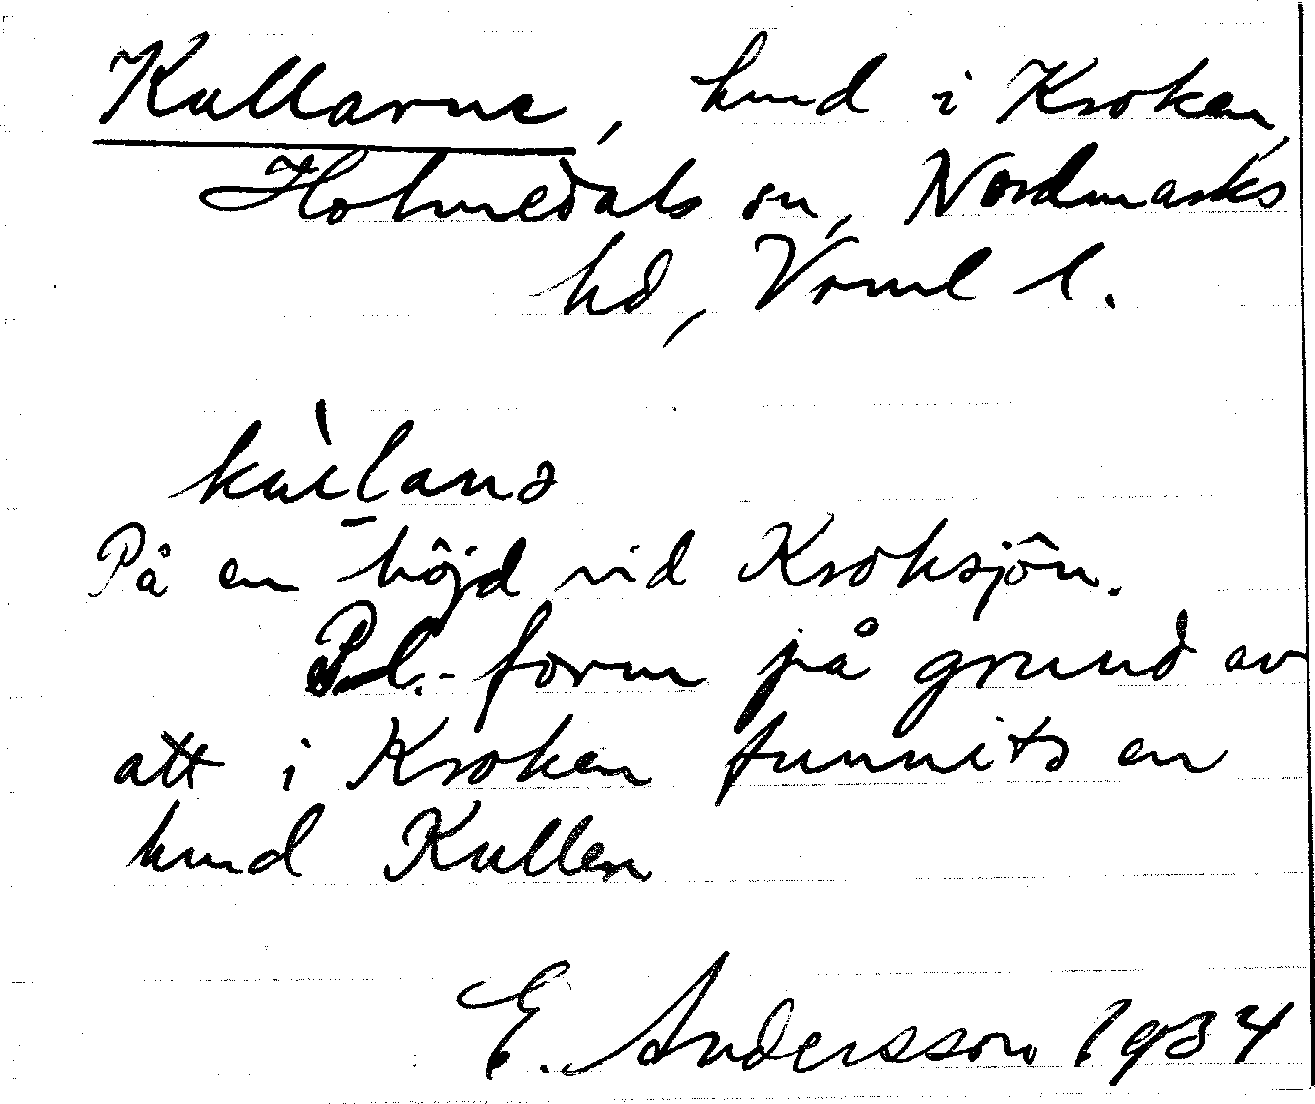 Kullarne, hmd i Kroken,
Holmedals sn, Nordmarks
hd, Vrml l.
På en höjd vid Kroksjön.
Pl.-form på grund av
att i Kroken funnits en
hmd Kullen
E. Andersson 1934